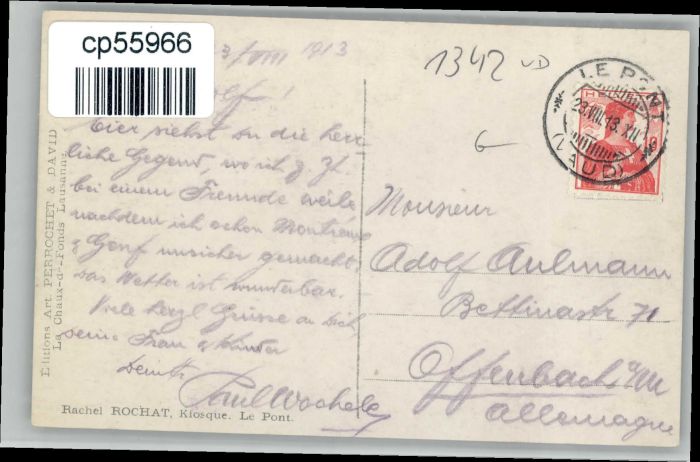 cp55966
1913
1342 VD
LE PONT
23.VIII.13.XII
(VAUD)
Hier siehst du die herr-
liche Gegend, wo ich z. Zt.
bei einem Freunde weile,
nachdem ich schon Montreux
& Genf unsicher gemacht.
Das Wetter ist wunderbar.
Viele herzl Grüsse an Dich
Frau & Kinder
Dein
Paul
Monsieur
Adolf Aulmann
Bettinastr 71
Offenbach a/M
Allemagne
Editions Art. PERROCHET & DAVID
La Chaux-de-Fonds Lausanne
Rachel ROCHAT, Kiosque. Le Pont.